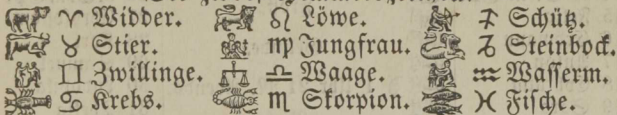 ♈ Widder. ♌ Löwe. ♐ Schütz.
♉ Stier. ♍ Jungfrau. ♑ Steinbock.
♊ Zwillinge. ♎ Waage. ♒ Wasserm.
♋ Krebs. ♏ Skorpion. ♓ Fische.